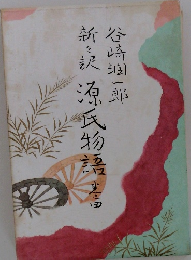 谷崎潤一郎
新々訳 源氏物語 巻四